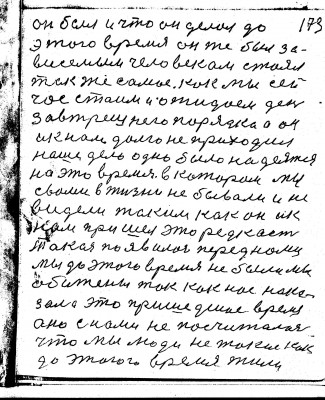 он был и что он делал до 173
этого время он же был за-
висемым человекам стаял
так же самае, как мы сей
час стаим и ожидаем ден
завтрещнего порядка а он
ик нам долго не приходил
наше дело одно было надеятся
на это время. в котором мы
свами в жизни не бывали и не
видели таким как он ик
нам пришел это редкаст
такая появилас передномы
мы до этого время не были мы
обижены так как нас нака
зала это пришедшие время
оно снами не посчиталас
что мы люди не такие как
до этого время жили